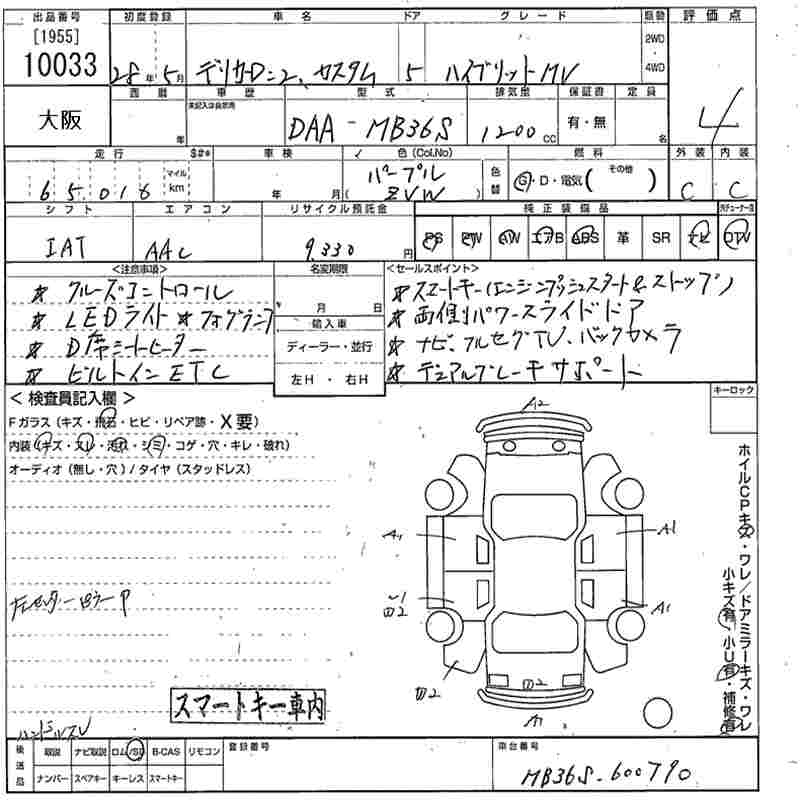 出品番号 初度登録 車名 ドア グレード 駆動 評価点
[1955]
10033 28年5月 デリカD:2 カスタム 5 ハイブリットMV 2WD・4WD 4
西暦 車歴 型式 排気量 保証書 定員
未記入は自家用
大阪 年 DAA-MB36S 1200cc 有・無 名
走行 $#* 車検 色(Col.No) 燃料 外装 内装
65,018 マイル km 年 月 パープル (ZVW) 色替 G・D・電気( その他 ) C C
シフト エアコン リサイクル預託金 純正装備品
IAT AAC 9,330円 PS PW AW エアB ABS 革 SR ナビ DTV
<注意事項> 名変期限 <セールスポイント>
* クルーズコントロール * スマートキー(エンジンプッシュスタート&ストップ)
* LEDライト * フォグランプ 月 日 * 両側パワースライドドア
輸入車
* D席シートヒーター ディーラー・並行 * ナビ、フルセグTV、バックカメラ
* ビルトインETC 左H・右H * デュアルブレーキサポート
<検査員記入欄> キーロック
Fガラス(キズ・飛石・ヒビ・リペア跡・X要)
内装(キズ・スレ・汚れ・シミ・コゲ・穴・キレ・破れ)
オーディオ(無し・穴)/タイヤ(スタッドレス)
A2
A1 A1
A1
凹2
凹2 凹2
A1
ホイルCPキズ・ワレ/ドアミラーキズ・ワレ
小キズ有・小U有・補修有
スマートキー車内
ハンドルスレ
後送品 取説 ナビ取説 ロム/SD B-CAS リモコン 登録番号 車台番号
ナンバー スペアキー キーレス スマートキー MB36S-600790